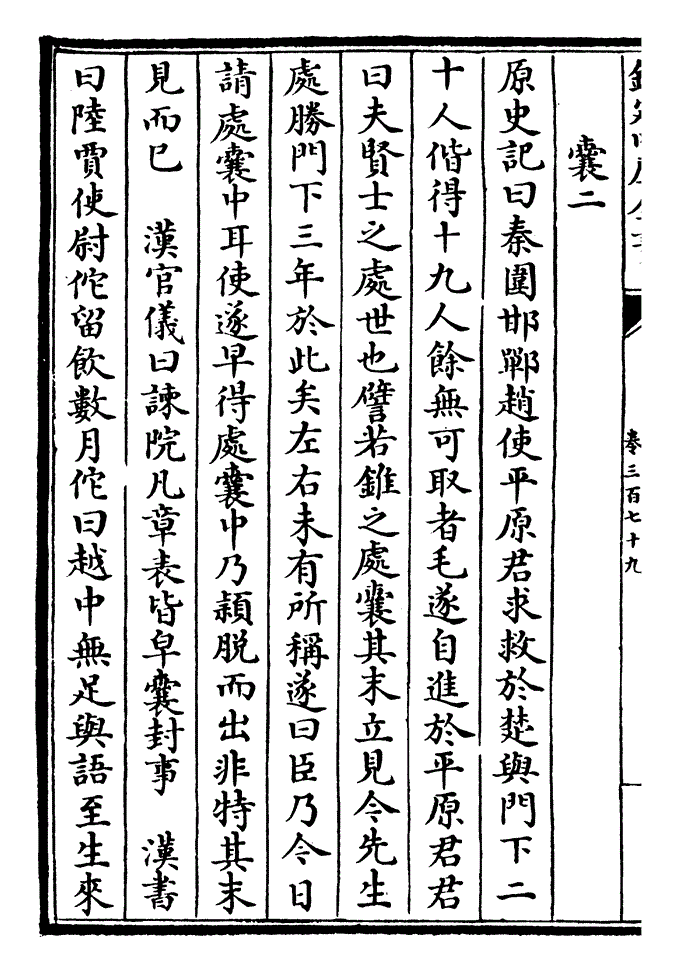 卷三百七十九
囊二
原史記曰秦圍邯鄲趙使平原君求救於楚與門下二
十人偕得十九人餘無可取者毛遂自進於平原君君
曰夫賢士之處世也譬若錐之處囊其末立見今先生
處勝門下三年於此矣左右未有所稱遂曰臣乃今日
請處囊中耳使遂早得處囊中乃穎脱而出非特其末
見而已　漢官儀曰諫院凡章表皆皁囊封事　漢書
曰陸賈使尉佗留飲數月佗曰越中無足與語至生來